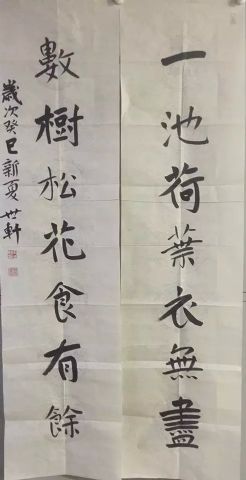 一池荷葉衣無盡
數樹松花食有餘
歲次癸巳新夏世軒